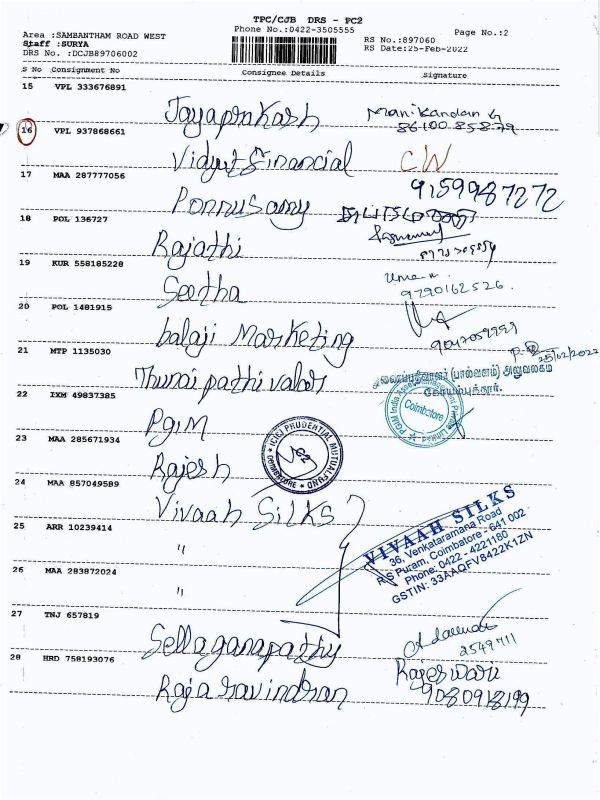 TPC/CJB DRS - PC2
Phone No.:0422-3505555
Page No.:2
Area :SAMBANTHAM ROAD WEST
Staff :SURYA
DRS No. :DCJB89706002
RS No.:897060
RS Date:25-Feb-2022
S No Consignment No Consignee Details Signature
15 VPL 333676891
Jayaprakash Manikandan
86100 85879
16 VPL 937868661
Vidyut Financial CW
17 MAA 287777056
Ponnusamy 9159987272
18 POL 136727
Rajathi
19 KUR 558185228
Seetha
9790162526
20 POL 1481915
balaji Marketing
25/02/2022
21 MTP 1135030
Thunai pathivalar
துணைப்பதிவாளர் (பால்வளம்) அலுவலகம்
கோயம்புத்தூர்.
22 IXM 49837385
PGIM
Coimbatore
23 MAA 285671934
Rajesh
ICICI PRUDENTIAL MUTUAL FUND
COIMBATORE
24 MAA 857049589
Vivaah SILKS
VIVAAH SILKS
36, Venkataramana Road
R S Puram, Coimbatore - 641 002
Phone: 0422 - 4221180
GSTIN: 33AAQFV8422K1ZN
25 ARR 10239414
"
26 MAA 283872024
"
27 TNJ 657819
Sellaganapathy
2549711
28 HRD 758193076
Raja ravindran Rajeswari
9080918199